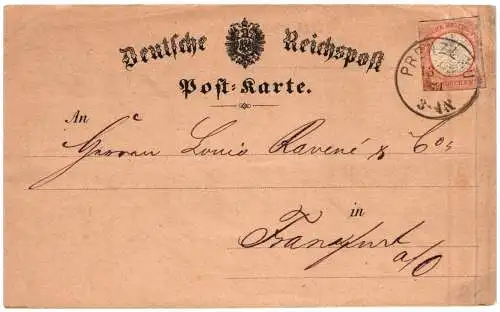 Deutsche Reichspost
Post-Karte.
3-4N
An
Louis Ravené & Co:
in
Frankfurt
a/O